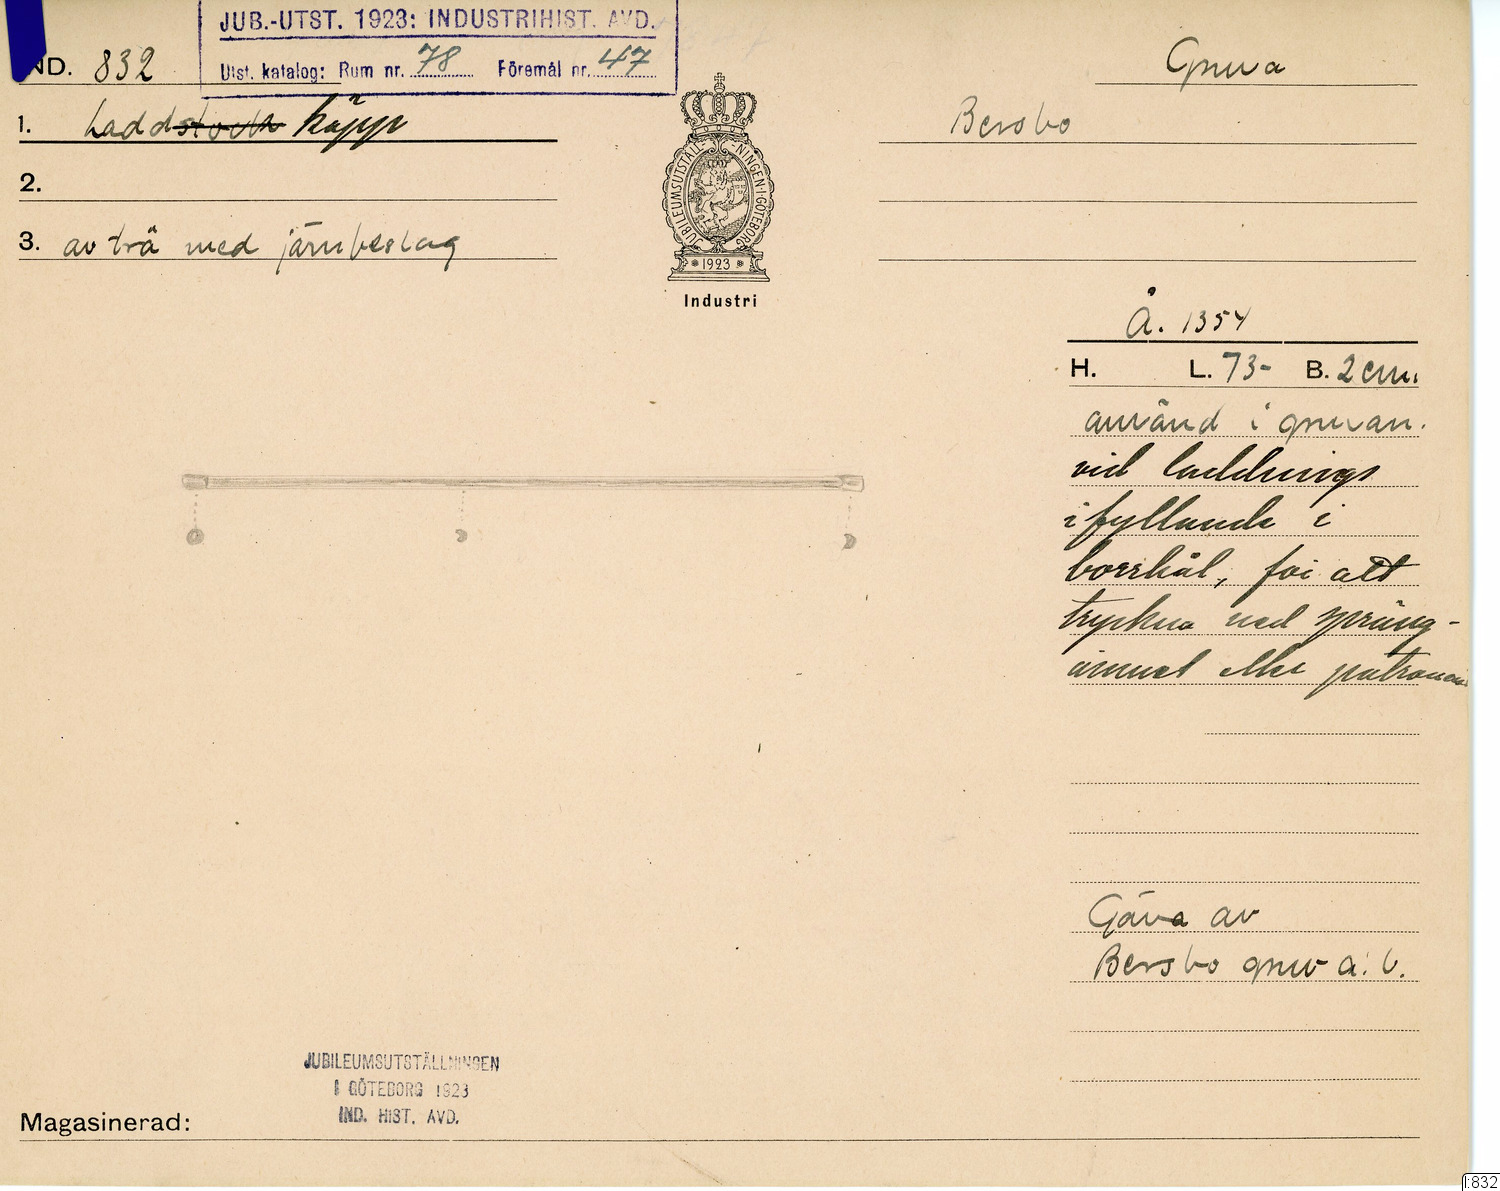 JUB.-UTST. 1923: INDUSTRIHIST. AVD.
Utst. katalog: Rum nr. 78 Föremål nr. 47
IND. 832
1. Laddstock käpp
2.
3. av trä med järnbeslag
JUBILEUMSUTSTÄLL-NINGEN·I·GÖTEBORG
1923
Industri
Gruva
Bersbo
Å. 1354
H. L. 73- B. 2 cm.
använd i gruvan.
vid laddnings
ifyllande i
borrhål, för att
trycka ned spräng-
ämnet eller patronen
Gåva av
Bersbo gruv a. b.
JUBILEUMSUTSTÄLLNINGEN
I GÖTEBORG 1923
IND. HIST. AVD.
Magasinerad:
I:832